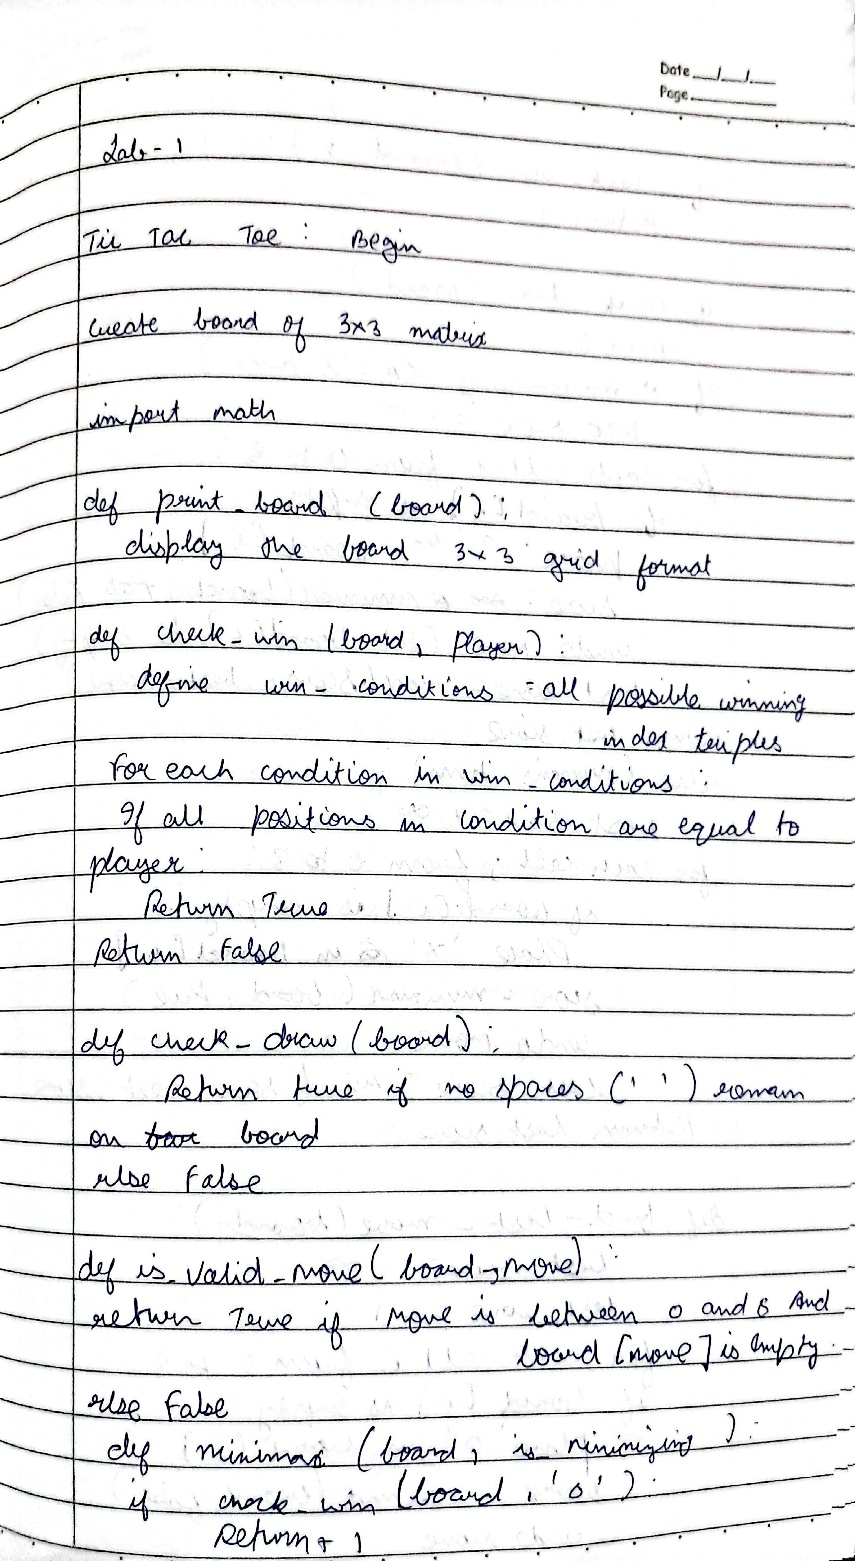 Date __/__/__
Page
Lab - 1
Tic Tac Toe : Begin
Create board of 3x3 matrix
import math
def print_board (board) :
display the board 3x3 grid format
def check_win (board, player) :
define win_conditions = all possible winning
index triples
For each condition in win_conditions :
If all positions in condition are equal to
player :
Return True
Return False
def check_draw (board) :
Return true if no spaces (' ') remain
on board
else False
def is_valid_move (board, move) :
return True if move is between 0 and 8 And
board [move] is empty.
else False
def minimax (board, is_minimizing) :
if check_win (board, 'O') :
Return + 1